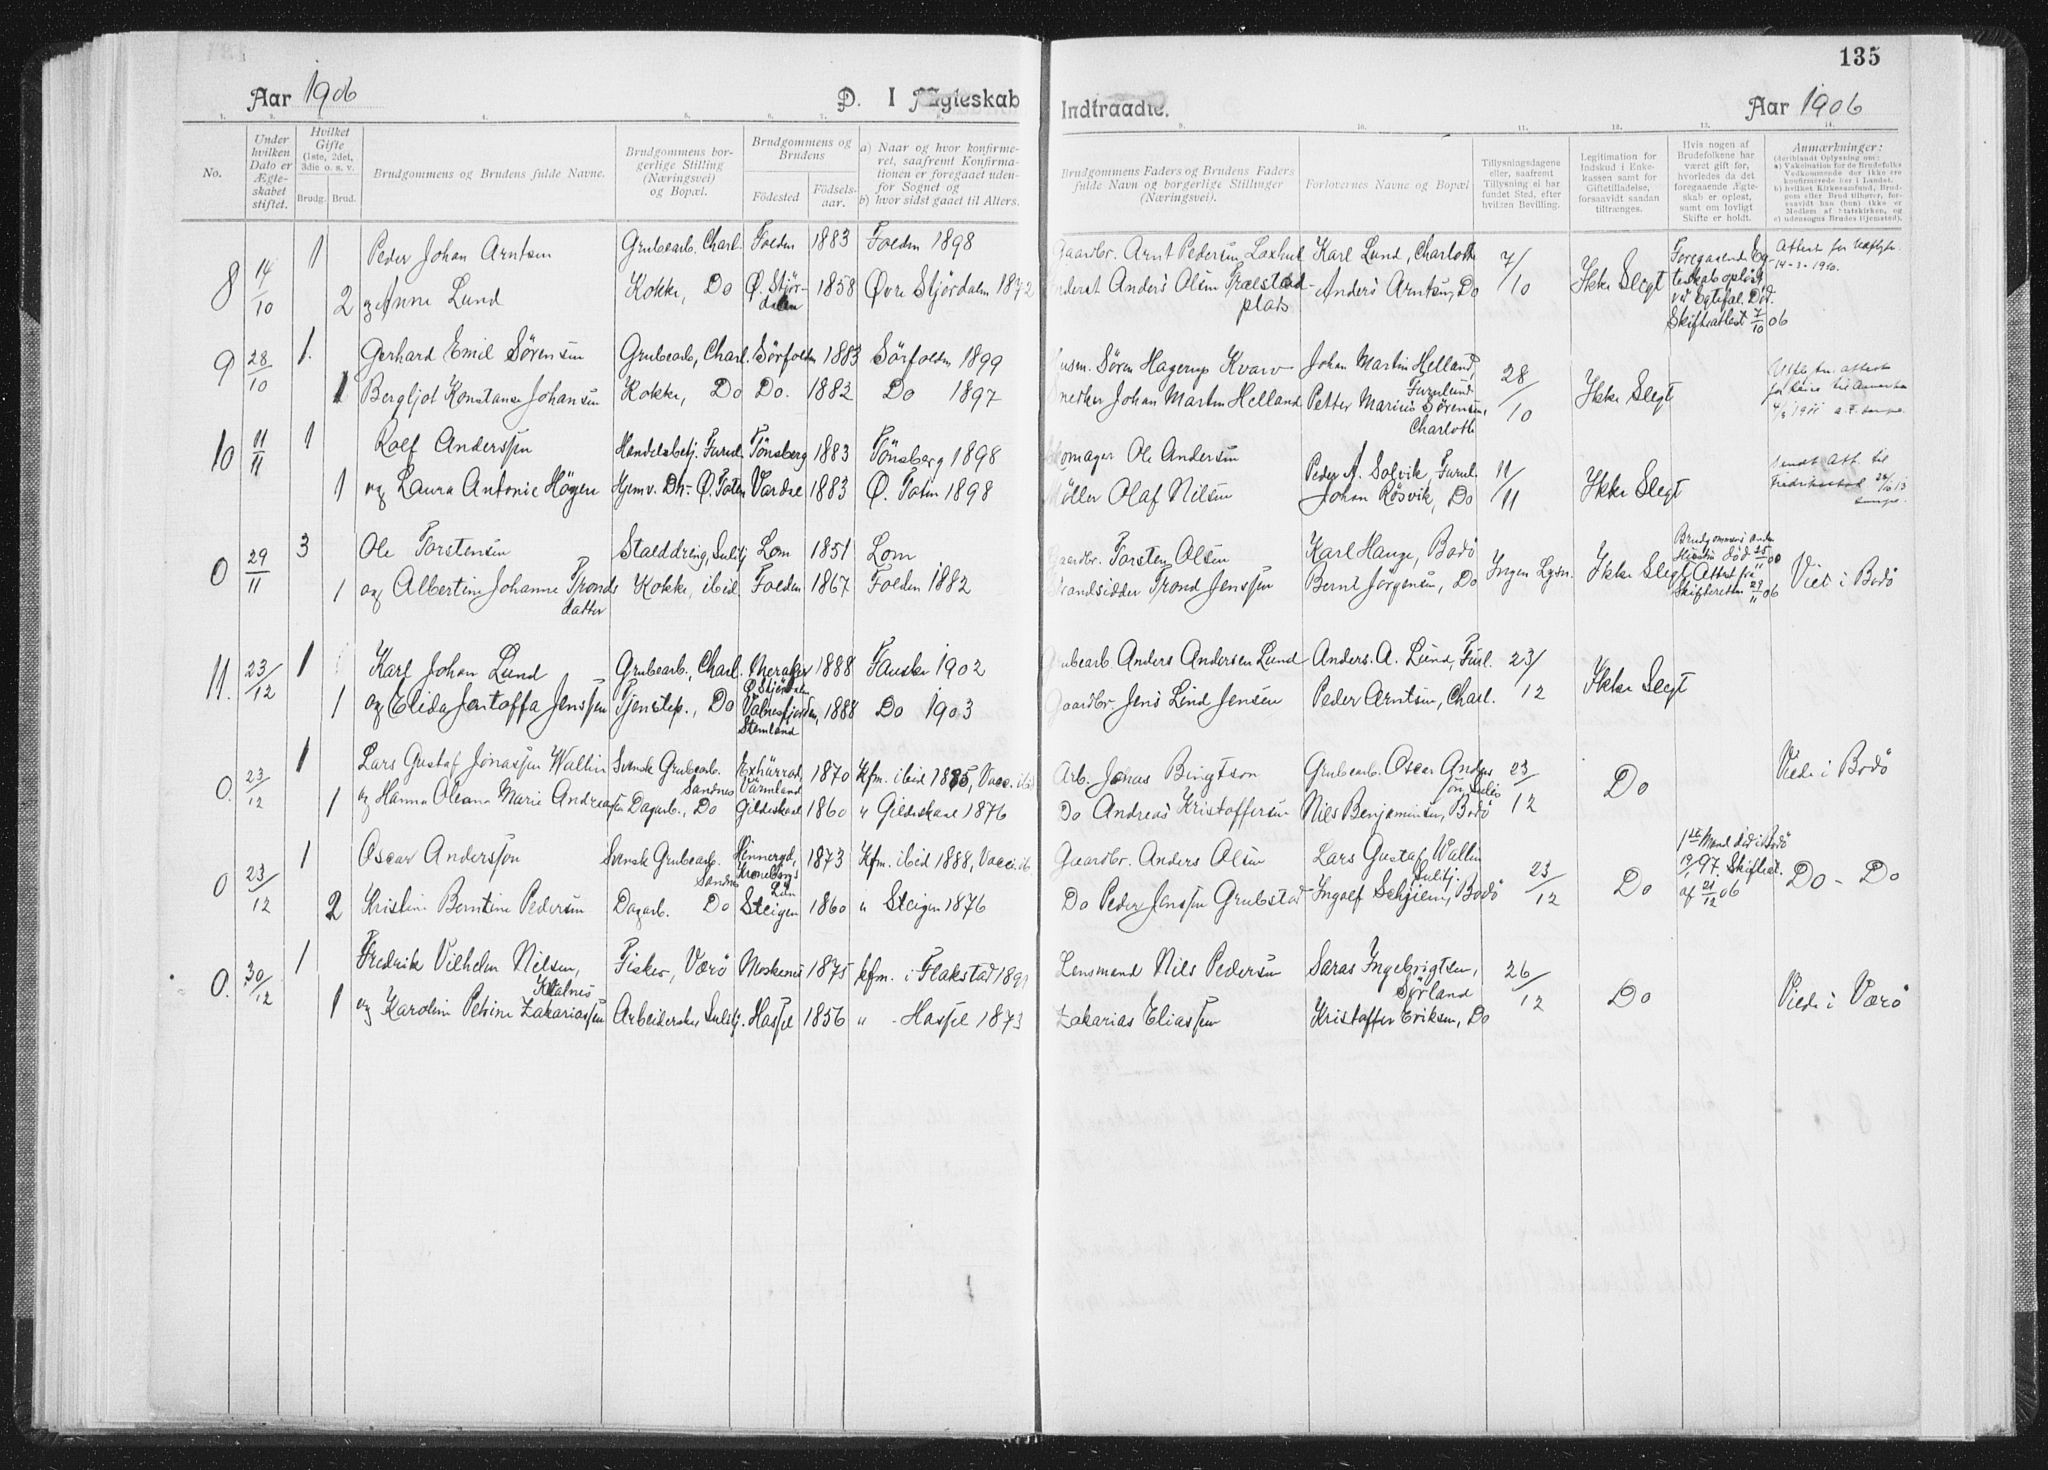 135
Aar 1906
D. I Ægteskab
Indtraadte.
Aar 1906
1. 2. 3. 4. 5. 6. 7. 8. 9. 10. 11. 12. 13. 14.
No.
Under hvilken Dato er Ægteskabet stiftet.
Hvilket Gifte (1ste, 2det, 3die o. s. v.
Brudg. Brud.
Brudgommens og Brudens fulde Navne.
Brudgommens borgerlige Stilling (Næringsvei) og Bopæl.
Brudgommens og Brudens
Fødested Fødselsaar.
a) Naar og hvor konfirmeret, saafremt Konfirmationen er foregaaet udenfor Sognet og
b) hvor sidst gaaet til Alters.
Brudgommens Faders og Brudens Faders fulde Navn og borgerlige Stillinger (Næringsvei).
Forlovernes Navne og Bopæl
Tillysningsdagene eller, saafremt Tillysning ei har fundet Sted, efter hvilken Bevilling.
Legitimation for Indskud i Enkekassen samt for Giftetilladelse, forsaavidt saadan tiltrænges.
Hvis nogen af Brudefolkene har været gift før, hvorledes da det foregaaende Ægteskab er opløst, samt om lovligt Skifte er holdt.
Anmærkninger:
(deriblandt Oplysning om: a) Vakcination for de Brudefolks Vedkommende der ikke ere konfirmerede her i Landet. b) hvilket Kirkesamfund, Brudgom eller Brud tilhører, forsaavidt han (hun) ikke er Medlem af Statskirken, og c) udensogns Brudes Hjemsted).
8 14/10 1 Peder Johan Arntsen Grubearb. Charl. Folden 1883 Folden 1898 Gaardbr. Arnt Pedersen Laxhul Karl Lund, Charlotte 7/10 Ikke Slegt Foregaaende Eg-
teskab opløst
ved Egtefæl. Død.
Skifteattest 7/10 06
Attest for
14-3-1910.
2 og Anne Lund Kokke, Do Ø. Stjør-
dalen 1858 Øvre Stjørdalen 1872 Anders Olsen Trælstad-
plads Anders Arntsen, Do
9 28/10 1. Gerhard Emil Sørensen Grubearb., Charl. Sørfolden 1883 Sørfolden 1899 Søren Hagerup Kvarv Johan Martin Helland,
Furulund 28/10 Ikke Slegt
attest
til Amerika
1 Bergljot Konstanse Johansen Kokke, Do Do. 1882 Do 1897 Johan Martin Helland Petter Marius Sørensen,
Charlotte
10 11/11 1 Rolf Anderssen Handelsbetj. Furul. Tønsberg 1883 Tønsberg 1898 Skomager Ole Andersen Peder A. Solvik, Furul. 11/11 Ikke Slegt Sendt Att. til
Fredrikstad
1 og Laura Antonie Høyen Hjemv. Dtr. Ø. Toten Vardal 1883 Ø. Toten 1898 Møller Olaf Nilsen Johan Røsvik, Do
0 29/11 3 Ole Torstensen Stalddreng, Sulitj. Lom 1851 Lom Gaardbr. Torsten Olsen Karl Hauge, Bodø Ingen Lysn. Ikke Slegt Brudgommens anden
Hustru død 25/11 00
Attest fra
Skifteretten 29/11 06 Viet i Bodø
1 og Albertine Johanne Tronds
datter Kokke, ibid. Folden 1867 Folden 1882 Strandsidder Trond Jenssen Bernt Jørgensen, Do
11. 23/12 1 Karl Johan Lund Grubearb., Charl. Meraker
Ø. Stjørdalen 1888 Fauske 1902 Grubearb. Anders Andersen Lund Anders. A. Lund, Furl. 23/12 Ikke Slegt
1 og Elida Jentoffa Jenssen Tjenstep., Do Valnesfjorden,
Stemland 1888 Do 1903 Gaardbr. Jens Lind Jensen Peder Arntsen, Charl.
0. 23/12 1 Lars Gustaf Jonassen Wallin Svensk Grubearb.
Sandnes Exhärrad,
Värmland 1870 Kfm. ibid 1885, Vacc. ibd Arb. Jonas Bingtson Grubearb. Oscar Anders
son, Sulis 23/12 Do Viede i Bodø
1 og Hanna Oleana Marie Andreassen Dagarb., Do Gildeskaal 1860 " Gildeskaal 1876 Do Andreas Kristoffersen Nils Benjaminsen, Bodø
0 23/12 1 Oscar Anderssen Svensk Grubearb.
Sandnes Hinneryd,
Kronobergs
Län 1873 Kfm. ibid 1888, Vacc. ib. Gaardbr. Anders Olsen Lars Gustaf Wallin
Sulitj. 23/12 Do 1ste Mand død i Bodø
97. Skifteat.
af 21/12 06 Do - Do
2 Kristine Berntine Pedersen Dagarb. Do Steigen 1860 " Steigen 1876 Do Peder Jenssen Grubstad Ingolf Schjelm, Bodø
0. 30/12 1 Fredrik Vilhelm Nilsen,
Kvalnes Fisker, Værø Moskenes 1875 kfm. i Flakstad 1891 Lensmand Nils Pedersen Saras Ingebrigtsen,
Sørland 26/12 Do Viede i Værø
1 og Karoline Petrine Zakariassen Arbeiderske, Sulitj. Hassel 1856 " Hassel 1873 Zakarias Eliassen Kristoffer Eriksen, Do